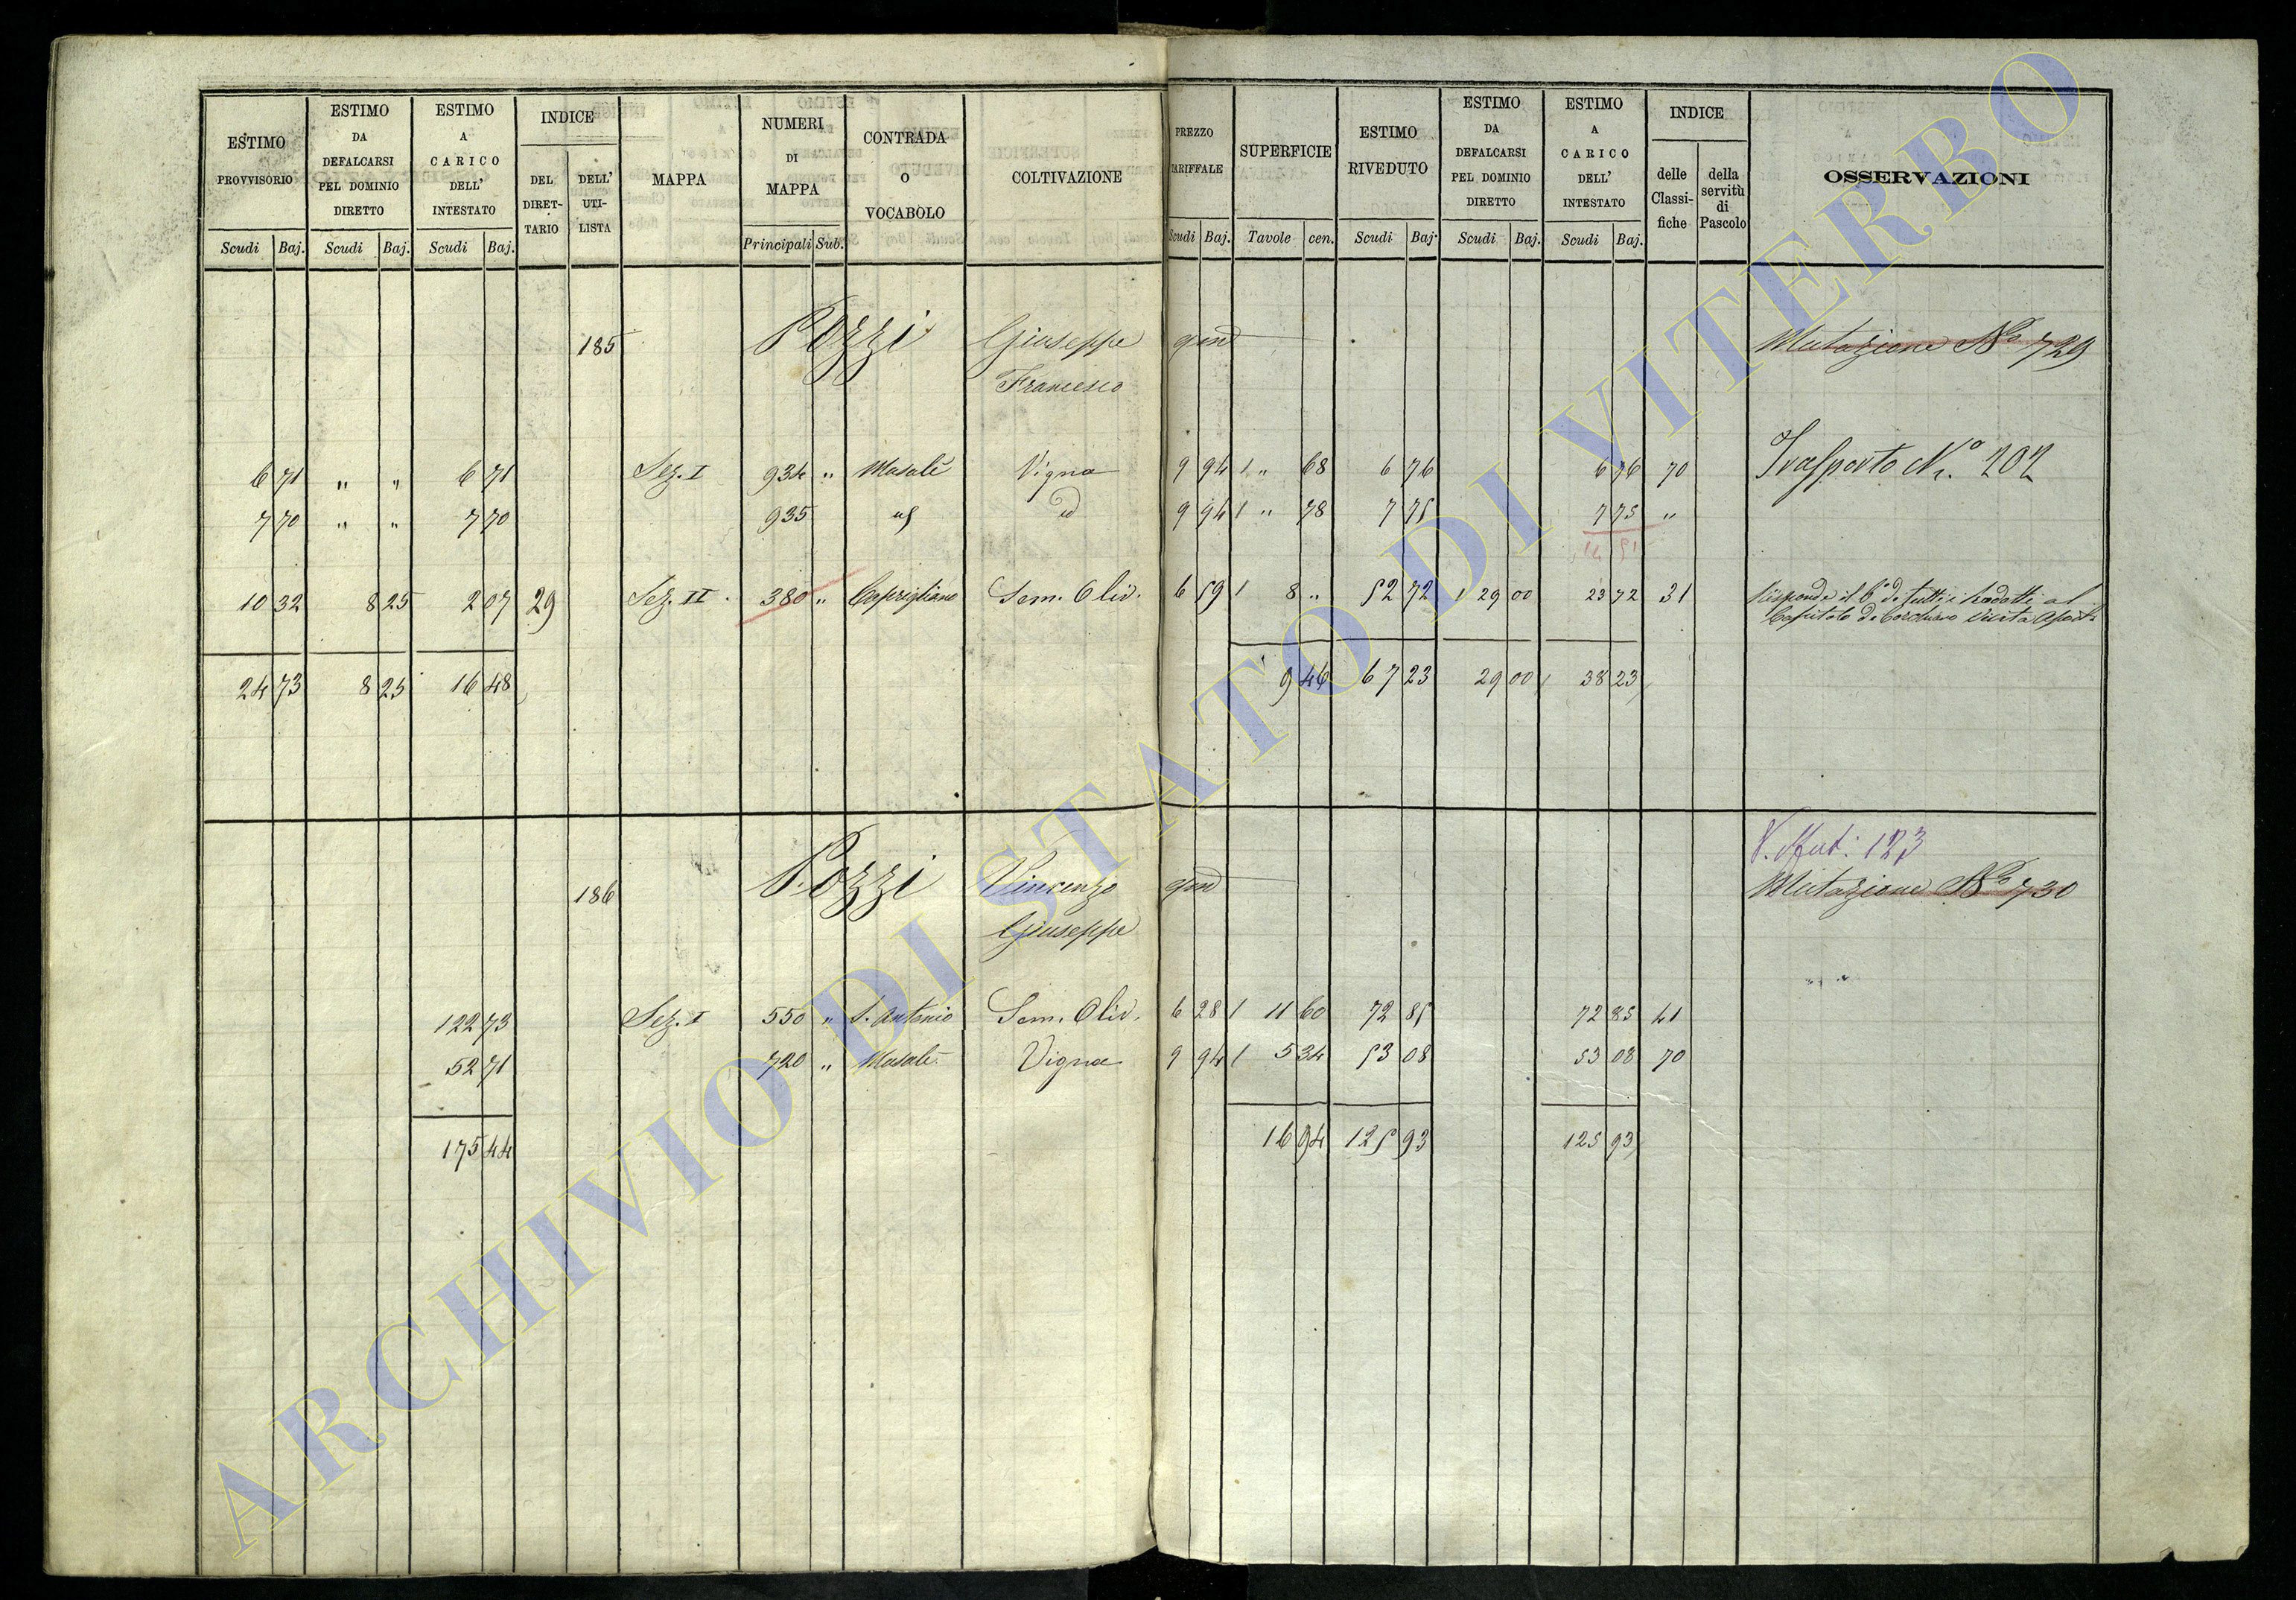 ESTIMO PROVVISORIO
ESTIMO DA DEFALCARSI PEL DOMINIO DIRETTO
ESTIMO A CARICO DELL' INTESTATO
INDICE
DEL DIRET- TARIO
DELL' UTI- LISTA
MAPPA
NUMERI DI MAPPA
CONTRADA O VOCABOLO
COLTIVAZIONE
PREZZO TARIFFALE
SUPERFICIE
ESTIMO RIVEDUTO
ESTIMO DA DEFALCARSI PEL DOMINIO DIRETTO
ESTIMO A CARICO DELL' INTESTATO
INDICE
delle Classi- fiche
della servitù di Pascolo
OSSERVAZIONI
Scudi Baj. Scudi Baj. Scudi Baj. Principali Sub. Scudi Baj. Tavole cen. Scudi Baj. Scudi Baj. Scudi Baj.
185 Pozzi Giuseppe qm Mutazione No 729
Francesco
6 71 " " 6 71 Sez. I 934 " Masale Vigna 9 94 1 " 68 6 76 6 76 70 Trasporto No. 202
7 70 " " 7 70 935 id 9 94 1 " 78 7 75 7 75 "
14 51
10 32 8 25 2 07 29 Sez. II. 380 " Caprigliano Sem. Oliv. 6 59 1 8 " 52 72 29 00 23 72 31 Risponde il 6o di tutti i prodotti al
Capitolo di Corchiano
24 73 8 25 16 48 9 46 67 23 29 00 38 23
V. Mut: 123
186 Pozzi Vincenzo qm Mutazione No 730
Giuseppe
122 73 Sez. I 550 " S. Antonio Sem. Oliv. 6 28 1 11 60 72 85 72 85 41
52 71 720 " Masale Vigna 9 94 1 5 34 53 08 53 08 70
175 44 16 94 125 93 125 93
ARCHIVIO DI STATO DI VITERBO